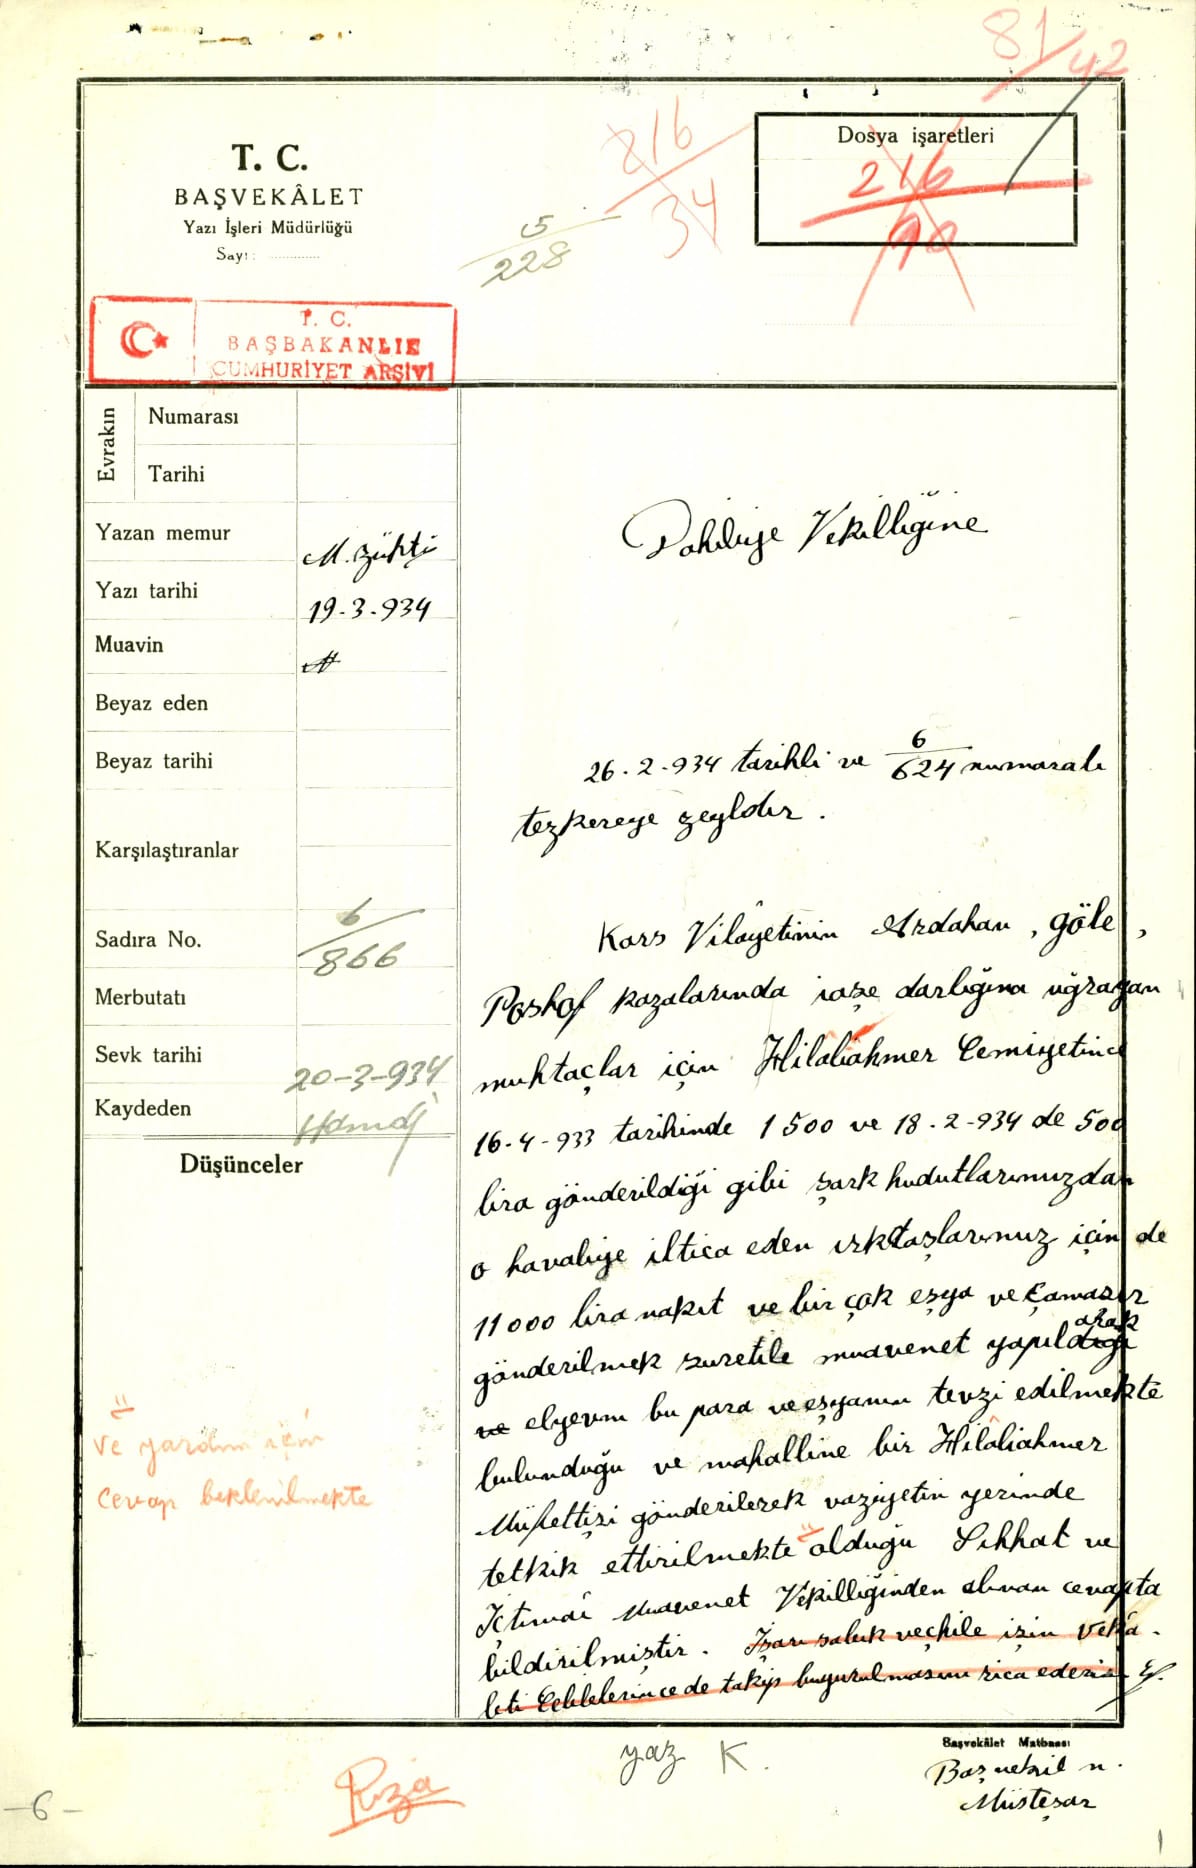 81/42
216/34
Dosya işaretleri
216
T. C.
BAŞVEKÂLET
Yazı İşleri Müdürlüğü
Sayı:
5/228
T. C.
BAŞBAKANLIK
CUMHURİYET ARŞİVİ
Evrakın
Numarası
Tarihi
Yazan memur M. Zühtü
Yazı tarihi 19-3-934
Muavin
Beyaz eden
Beyaz tarihi
Karşılaştıranlar
Sadıra No. 6/866
Merbutatı
Sevk tarihi 20-3-934
Kaydeden Hamdi
Düşünceler
ve yardım için
cevap beklenilmekte
Dahiliye Vekilliğine
26-2-934 tarihli ve 6/624 numaralı
tezkereye zeyldır.
Kars Vilâyetinin Ardahan, Göle,
Poshof kazalarında iaşe darlığına uğrayan
muhtaçlar için Hilâliahmer Cemiyetince
16-4-933 tarihinde 1500 ve 18-2-934 de 500
lira gönderildiği gibi şark hudutlarımızdan
o havaliye iltica eden ırktaşlarımız için de
11000 lira nakıt ve bir çok eşya ve çamaşır
gönderilmek suretile muavenet yapıldığı arak
ve elyevm bu para ve eşyanın tevzi edilmekte
bulunduğu ve mahalline bir Hilâliahmer
Müfettişi gönderilerek vaziyetin yerinde
tetkik ettirilmekte olduğu Sıhhat ve
İçtimaî Muavenet Vekilliğinden alınan cevapta
bildirilmiştir. İşarı sabık veçhile işin Vekâ-
leti Celilelerince de takip buyurulmasını rica ederim Ef.
Başvekâlet Matbaası
yaz K.
Başvekil n.
Müsteşar
Rıza
-6-
1